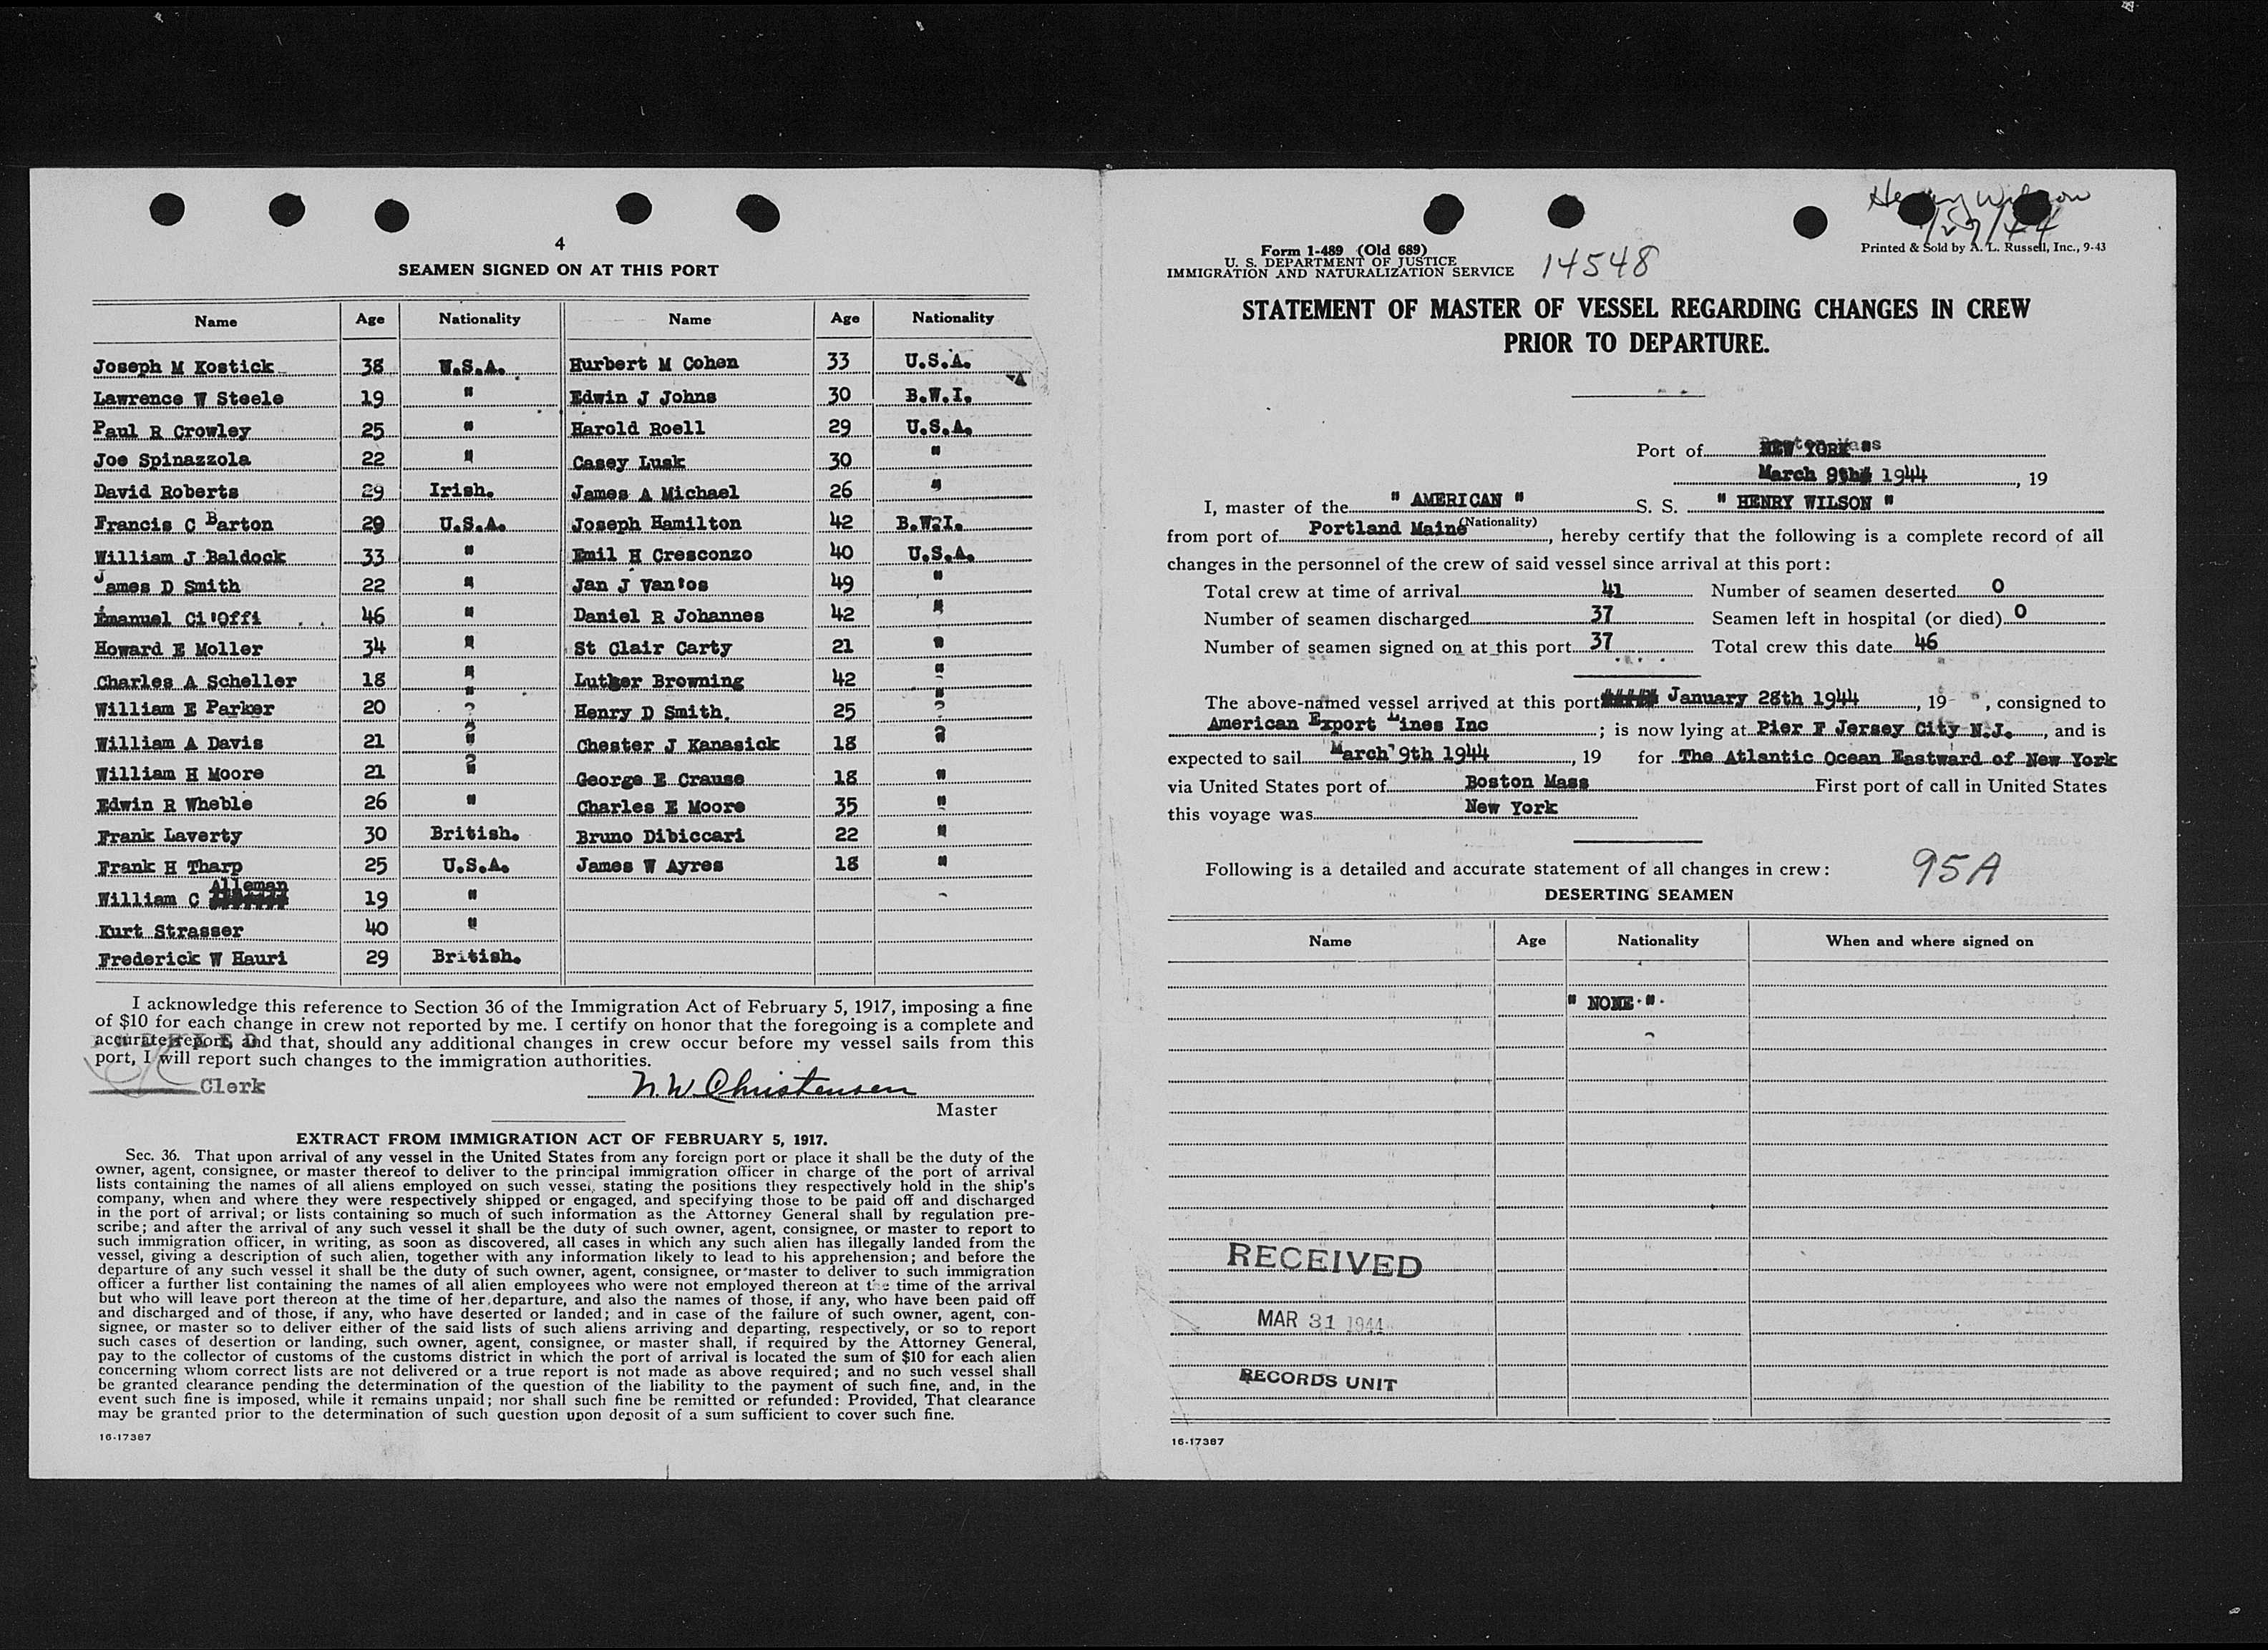 4
SEAMEN SIGNED ON AT THIS PORT
Name Age Nationality Name Age Nationality
Joseph M Kostick 38 U.S.A. Hurbert M Cohen 33 U.S.A.
Lawrence W Steele 19 " Edwin J Johns 30 B.W.I.
Paul R Crowley 25 " Harold Roell 29 U.S.A.
Joe Spinazzola 22 " Casey Lusk 30 "
David Roberts 29 Irish. James A Michael 26 "
Francis C Barton 29 U.S.A. Joseph Hamilton 42 B.W.I.
William J Baldock 33 " Emil H Cresconzo 40 U.S.A.
James D Smith 22 " Jan J Van'os 49 "
Emanuel Ci'Offi 46 " Daniel R Johannes 42 "
Howard E Moller 34 " St Clair Carty 21 "
Charles A Scheller 18 " Luther Browning 42 "
William E Parker 20 " Henry D Smith. 25 "
William A Davis 21 " Chester J Kanasick 18 "
William H Moore 21 " George E Crause 18 "
Edwin R Wheble 26 " Charles E Moore 35 "
Frank Laverty 30 British. Bruno Dibiccari 22 "
Frank H Tharp 25 U.S.A. James W Ayres 18 "
William C Alleman 19 "
Kurt Strasser 40 "
Frederick W Hauri 29 British.
I acknowledge this reference to Section 36 of the Immigration Act of February 5, 1917, imposing a fine
of $10 for each change in crew not reported by me. I certify on honor that the foregoing is a complete and
accurate report, and that, should any additional changes in crew occur before my vessel sails from this
port, I will report such changes to the immigration authorities.
Clerk N. W. Christensen
Master
EXTRACT FROM IMMIGRATION ACT OF FEBRUARY 5, 1917.
Sec. 36. That upon arrival of any vessel in the United States from any foreign port or place it shall be the duty of the
owner, agent, consignee, or master thereof to deliver to the principal immigration officer in charge of the port of arrival
lists containing the names of all aliens employed on such vessel, stating the positions they respectively hold in the ship's
company, when and where they were respectively shipped or engaged, and specifying those to be paid off and discharged
in the port of arrival; or lists containing so much of such information as the Attorney General shall by regulation pre-
scribe; and after the arrival of any such vessel it shall be the duty of such owner, agent, consignee, or master to report to
such immigration officer, in writing, as soon as discovered, all cases in which any such alien has illegally landed from the
vessel, giving a description of such alien, together with any information likely to lead to his apprehension; and before the
departure of any such vessel it shall be the duty of such owner, agent, consignee, or master to deliver to such immigration
officer a further list containing the names of all alien employees who were not employed thereon at the time of the arrival
but who will leave port thereon at the time of her departure, and also the names of those, if any, who have been paid off
and discharged and of those, if any, who have deserted or landed; and in case of the failure of such owner, agent, con-
signee, or master so to deliver either of the said lists of such aliens arriving and departing, respectively, or so to report
such cases of desertion or landing, such owner, agent, consignee, or master shall, if required by the Attorney General,
pay to the collector of customs of the customs district in which the port of arrival is located the sum of $10 for each alien
concerning whom correct lists are not delivered or a true report is not made as above required; and no such vessel shall
be granted clearance pending the determination of the question of the liability to the payment of such fine, and, in the
event such fine is imposed, while it remains unpaid; nor shall such fine be remitted or refunded: Provided, That clearance
may be granted prior to the determination of such question upon deposit of a sum sufficient to cover such fine.
16-17387
Henry Wilson
Form 1-489 (Old 689)
U. S. DEPARTMENT OF JUSTICE
IMMIGRATION AND NATURALIZATION SERVICE 14548
Printed & Sold by A. L. Russell, Inc., 9-43
STATEMENT OF MASTER OF VESSEL REGARDING CHANGES IN CREW
PRIOR TO DEPARTURE.
Port of NEW YORK Boston Mass
March 9th 1944, 19
I, master of the " AMERICAN " S. S. " HENRY WILSON "
(Nationality)
from port of Portland Maine, hereby certify that the following is a complete record of all
changes in the personnel of the crew of said vessel since arrival at this port:
Total crew at time of arrival 41 Number of seamen deserted 0
Number of seamen discharged 37 Seamen left in hospital (or died) 0
Number of seamen signed on at this port 37 Total crew this date 46
The above-named vessel arrived at this port January 28th 1944, 19 , consigned to
American Export Lines Inc ; is now lying at Pier F Jersey City N.J., and is
expected to sail March 9th 1944, 19 for The Atlantic Ocean Eastward of New York
via United States port of Boston Mass First port of call in United States
this voyage was New York
Following is a detailed and accurate statement of all changes in crew: 95A
DESERTING SEAMEN
Name Age Nationality When and where signed on
" NONE "
RECEIVED
MAR 31 1944
RECORDS UNIT
16-17387